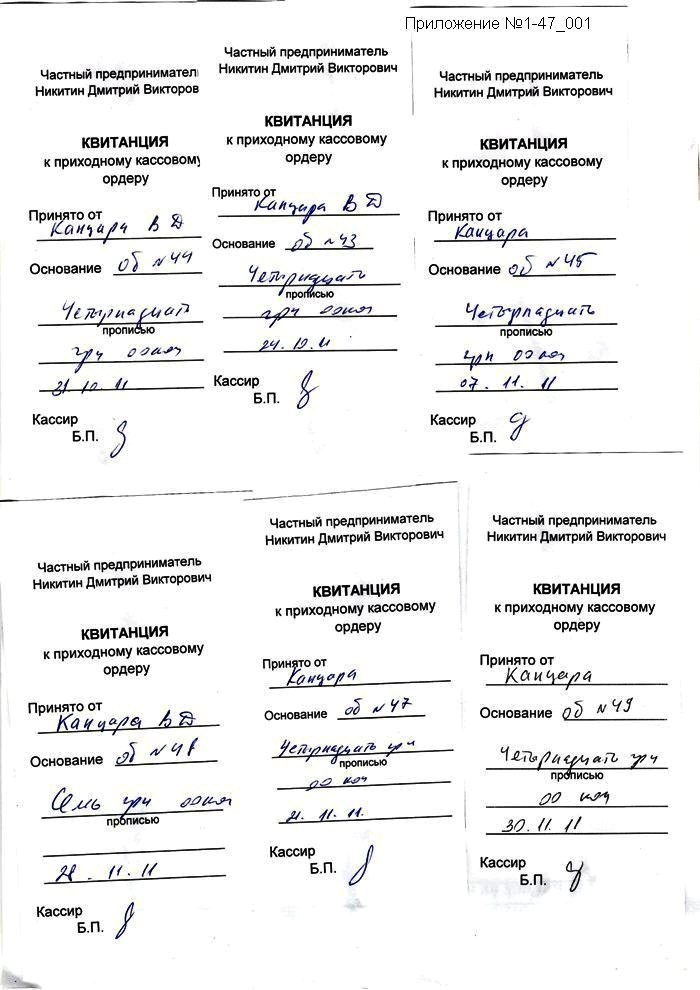 Приложение №1-47_001
Частный предприниматель
Никитин Дмитрий Викторов
КВИТАНЦИЯ
к приходному кассовому
ордеру
Принято от
Канцара В Д
Основание об №44
Четырнадцать
прописью
грн 00 коп
31.10.11
Кассир
Б.П.
Частный предприниматель
Никитин Дмитрий Викторович
КВИТАНЦИЯ
к приходному кассовому
ордеру
Принято от
Канцара В Д
Основание об №43
Четырнадцать
прописью
грн 00 коп
24.10.11
Кассир
Б.П.
Частный предприниматель
Никитин Дмитрий Викторович
КВИТАНЦИЯ
к приходному кассовому
ордеру
Принято от
Канцара
Основание об №45
Четырнадцать
прописью
грн 00 коп
07.11.11
Кассир
Б.П.
Частный предприниматель
Никитин Дмитрий Викторович
КВИТАНЦИЯ
к приходному кассовому
ордеру
Принято от
Канцара В Д
Основание об №48
Семь грн 00 коп
прописью
28.11.11
Кассир
Б.П.
Частный предприниматель
Никитин Дмитрий Викторович
КВИТАНЦИЯ
к приходному кассовому
ордеру
Принято от
Канцара
Основание об №47
Четырнадцать грн
прописью
00 коп
21.11.11.
Кассир
Б.П.
Частный предприниматель
Никитин Дмитрий Викторович
КВИТАНЦИЯ
к приходному кассовому
ордеру
Принято от
Канцара
Основание об №49
Четырнадцать грн
прописью
00 коп
30.11.11
Кассир
Б.П.